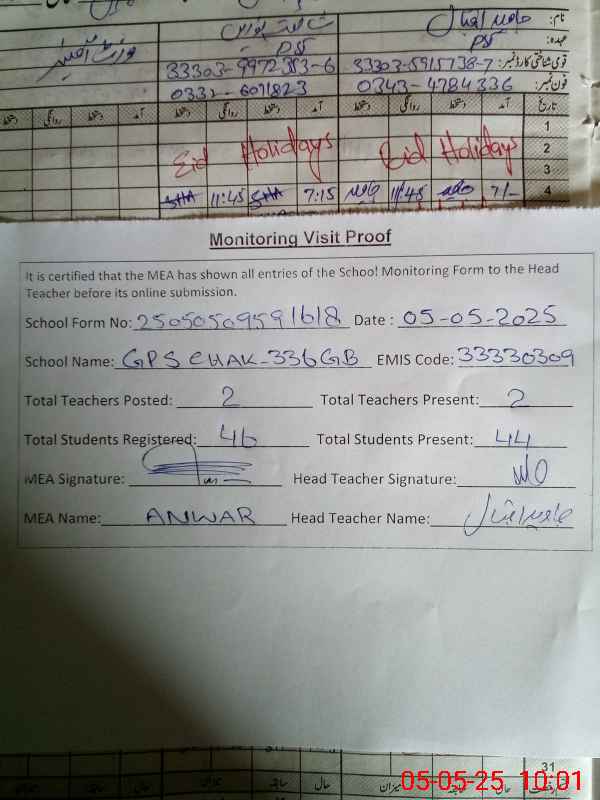 نام: جاوید اقبال
عہدہ: PST PST
قومی شناختی کارڈ نمبر: 33303-5915738-7 33303-9972353-6
فون نمبر: 0343-4784336 0332-6071823
تاریخ آمد دستخط روانگی دستخط آمد دستخط روانگی دستخط آمد دستخط روانگی
1
2 Eid Holidays Eid Holidays
3
4 7/- جاوید 11:45 جاوید 7:15 11:45
Monitoring Visit Proof
It is certified that the MEA has shown all entries of the School Monitoring Form to the Head
Teacher before its online submission.
School Form No: 25050509591618 Date : 05-05-2025
School Name: GPS CHAK-336GB EMIS Code: 33330309
Total Teachers Posted: 2 Total Teachers Present: 2
Total Students Registered: 46 Total Students Present: 44
MEA Signature: Head Teacher Signature:
MEA Name: ANWAR Head Teacher Name: جاوید اقبال
31
میزان سابقہ حال میزان سابقہ حال
05-05-25 10:01